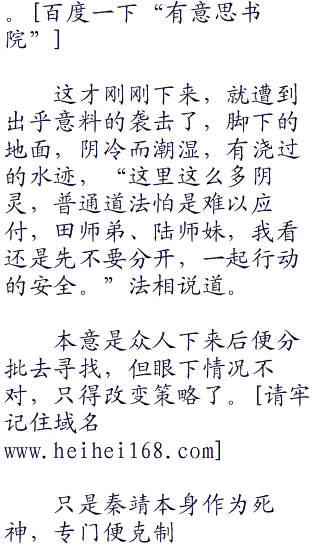 。[百度一下“有意思书
院”]
这才刚刚下来，就遭到
出乎意料的袭击了，脚下的
地面，阴冷而潮湿，有浇过
的水迹，“这里这么多阴
灵，普通道法怕是难以应
付，田师弟、陆师妹，我看
还是先不要分开，一起行动
的安全。”法相说道。
本意是众人下来后便分
批去寻找，但眼下情况不
对，只得改变策略了。[请牢
记住域名
www.heihei168.com]
只是秦靖本身作为死
神，专门便克制